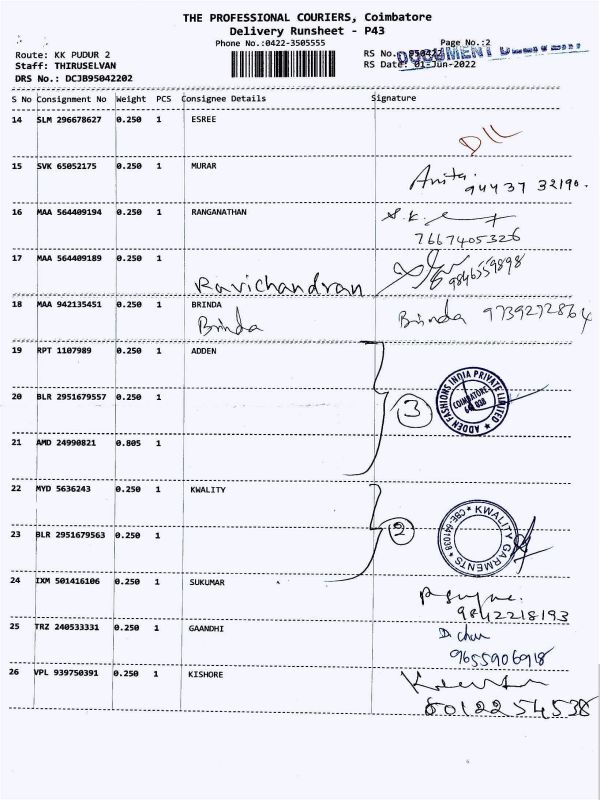 THE PROFESSIONAL COURIERS, Coimbatore
Delivery Runsheet - P43
Phone No.:0422-3505555
Page No.:2
Route: KK PUDUR 2
RS No.
Staff: THIRUSELVAN
RS Date: 01-Jun-2022
DOCUMENT
DRS No.: DCJB95042202
S No Consignment No Weight PCS Consignee Details Signature
14 SLM 296678627 0.250 1 ESREE
15 SVK 65052175 0.250 1 MURAR
Anita.
94437 32190.
16 MAA 564409194 0.250 1 RANGANATHAN
S.K.
7667405326
17 MAA 564409189 0.250 1
Ravichandran
9846559898
18 MAA 942135451 0.250 1 BRINDA
Brinda
Brinda 9739272864
19 RPT 1107989 0.250 1 ADDEN
20 BLR 2951679557 0.250 1
3
ADDEN FASHIONS INDIA PRIVATE LIMITED
COIMBATORE
641 038
21 AMD 24990821 0.805 1
22 MYD 5636243 0.250 1 KWALITY
23 BLR 2951679563 0.250 1
2
KWALITY GARMENTS
CBE-641038
24 IXM 501416106 0.250 1 SUKUMAR
9842218193
25 TRZ 240533331 0.250 1 GAANDHI
9655906918
26 VPL 939750391 0.250 1 KISHORE
8012254538